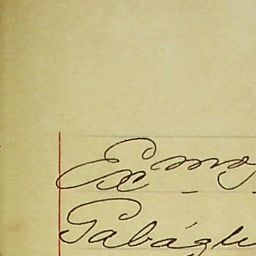 Exmo
Pabágli